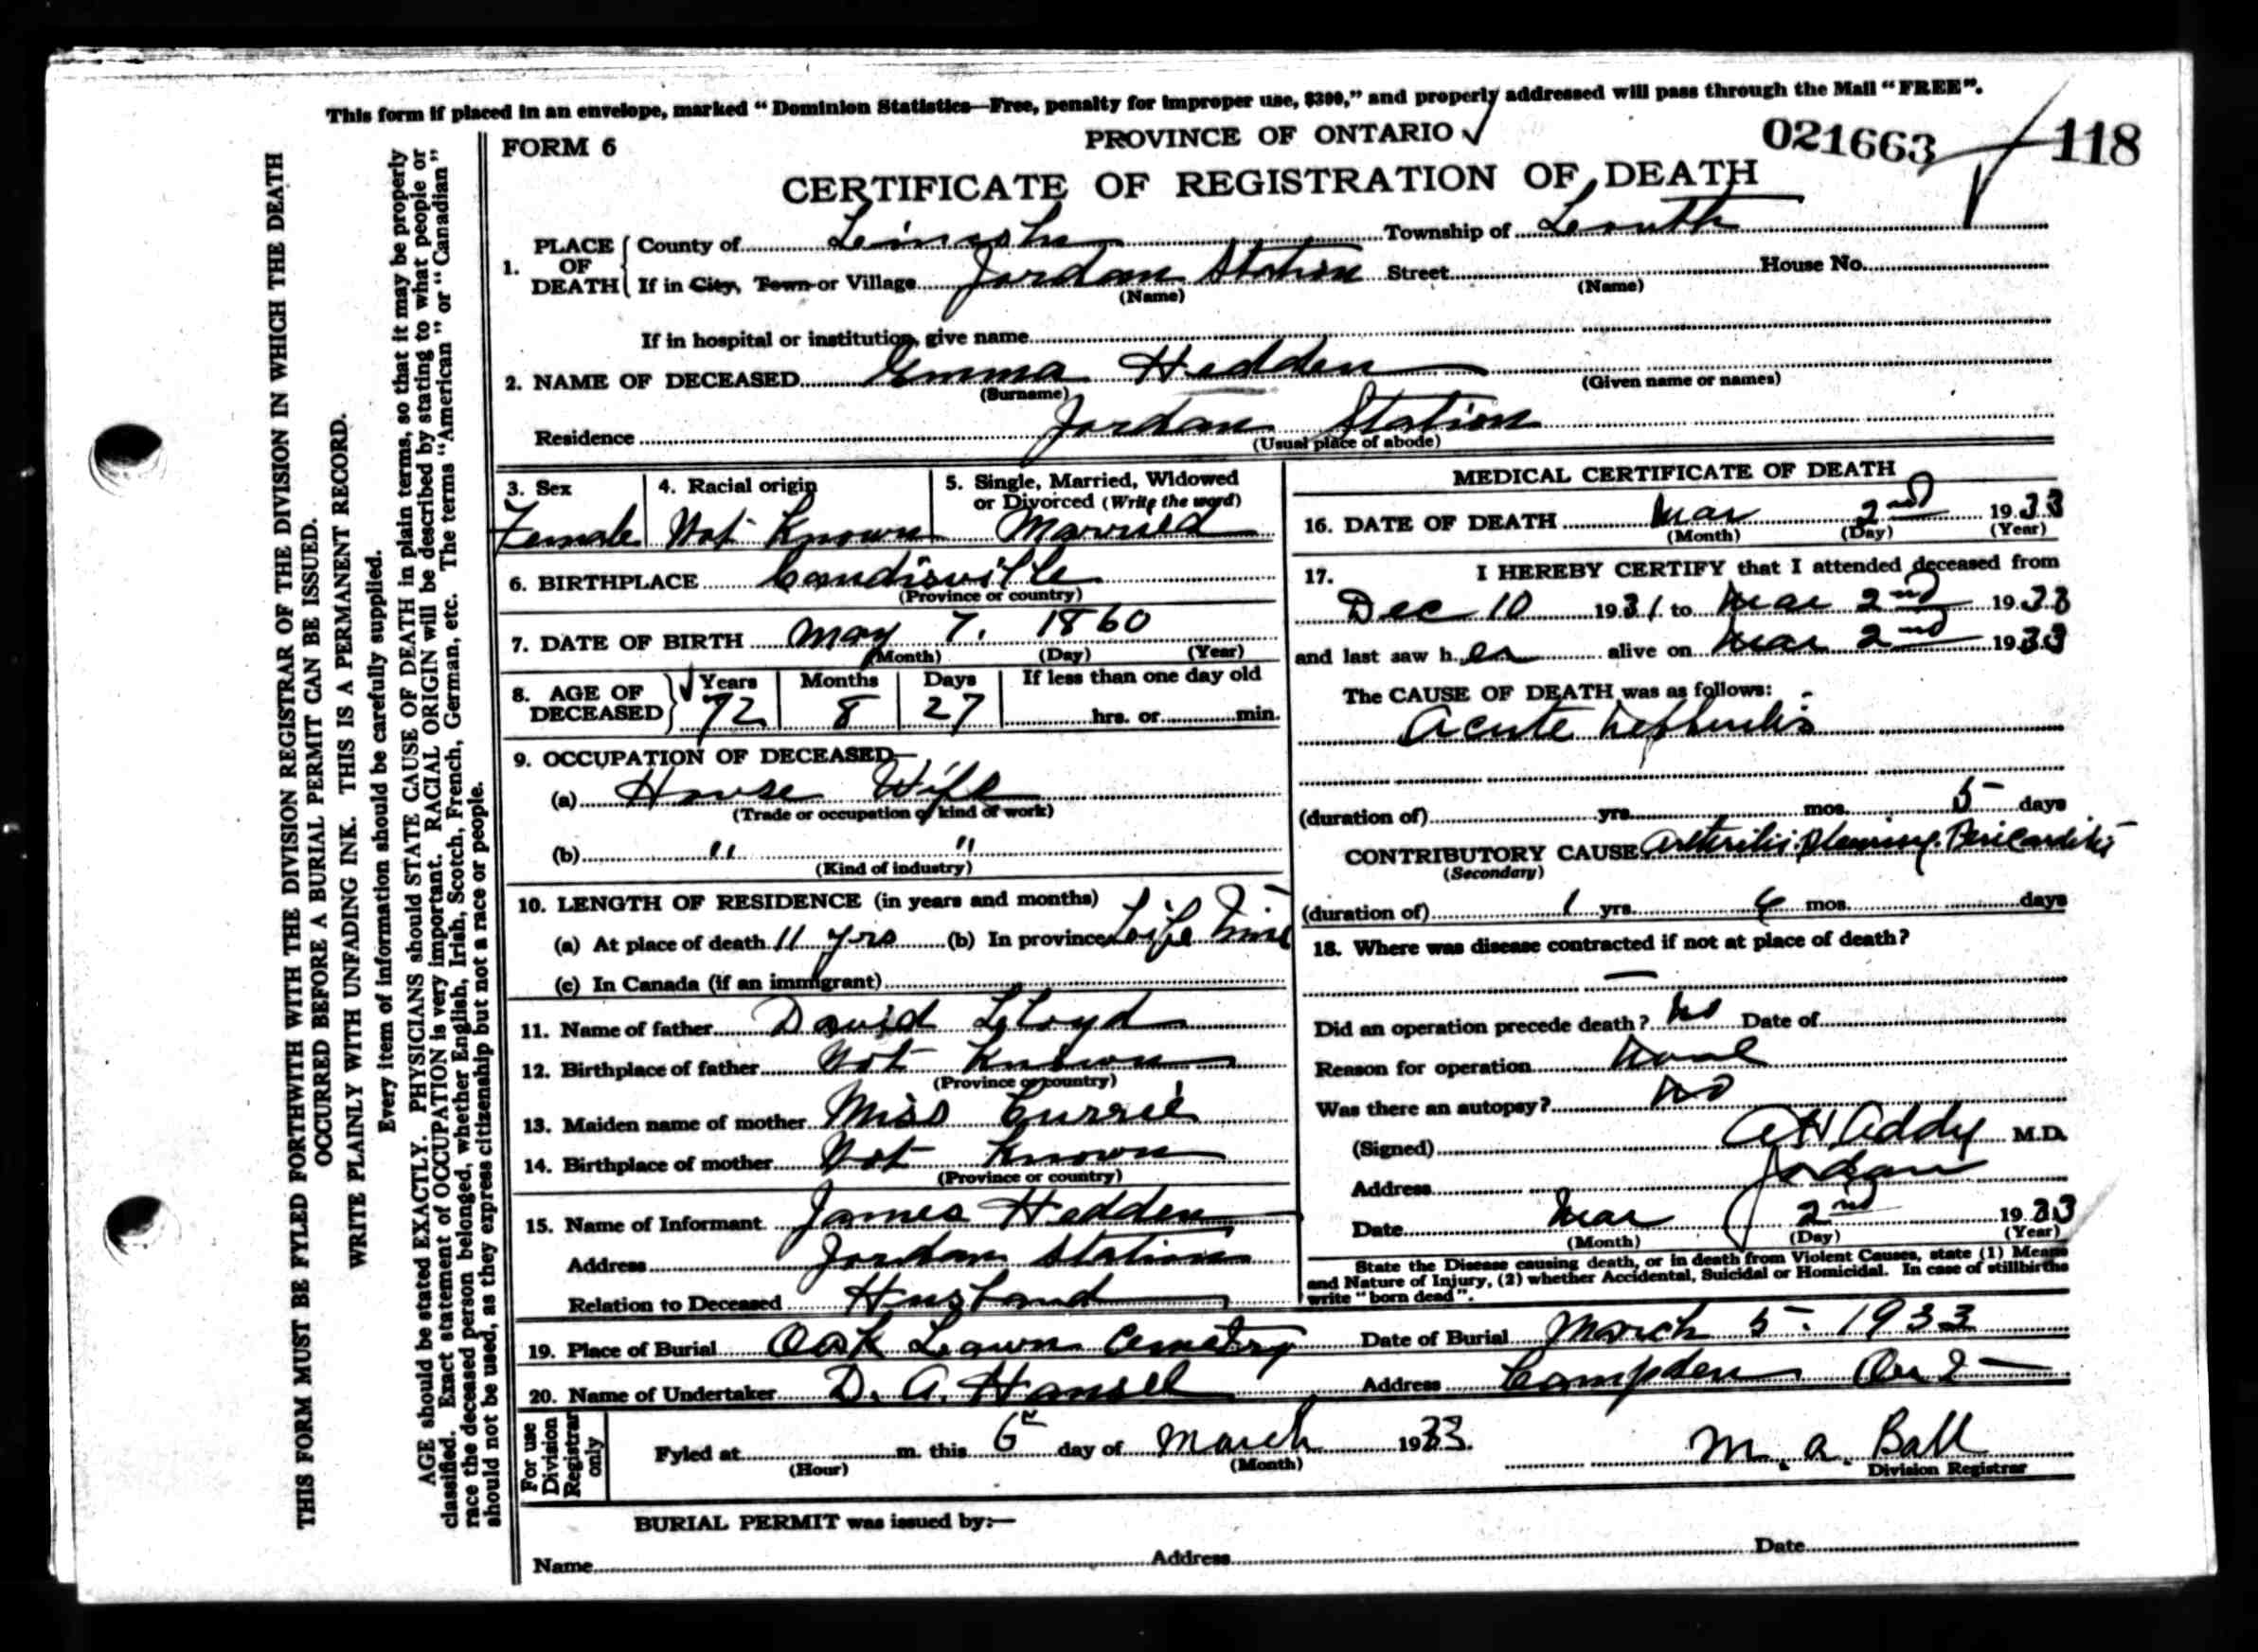 This form if placed in an envelope, marked "Dominion Statistics—Free, penalty for improper use, $300," and properly addressed will pass through the Mail "FREE".
FORM 6
PROVINCE OF ONTARIO
021663
118
CERTIFICATE OF REGISTRATION OF DEATH
1. PLACE OF DEATH County of Township of Louth
If in City, Town or Village Jordan Station Street House No.
(Name) (Name)
If in hospital or institution, give name
2. NAME OF DECEASED Emma Hedden
(Surname) (Given name or names)
Residence Jordan Station
(Usual place of abode)
3. Sex Female
4. Racial origin Not Known
5. Single, Married, Widowed or Divorced (Write the word) Married
6. BIRTHPLACE
(Province or country)
7. DATE OF BIRTH May 7. 1860
(Month) (Day) (Year)
8. AGE OF DECEASED Years 72 Months 8 Days 27 If less than one day old hrs. or min.
9. OCCUPATION OF DECEASED—
(a) House Wife
(Trade or occupation or kind of work)
(b) " "
(Kind of industry)
10. LENGTH OF RESIDENCE (in years and months)
(a) At place of death 11 yrs (b) In province Life Time
(c) In Canada (if an immigrant)
11. Name of father David Lloyd
12. Birthplace of father Not Known
(Province or country)
13. Maiden name of mother Miss Currie
14. Birthplace of mother Not Known
(Province or country)
15. Name of Informant James Hedden
Address Jordan Station
Relation to Deceased Husband
MEDICAL CERTIFICATE OF DEATH
16. DATE OF DEATH Mar 2nd 1933
(Month) (Day) (Year)
17. I HEREBY CERTIFY that I attended deceased from
Dec 10 1931 to Mar 2nd 1933
and last saw her alive on Mar 2nd 1933
The CAUSE OF DEATH was as follows:
Acute Nephritis
(duration of) yrs. mos. 5 days
CONTRIBUTORY CAUSE Arthritis. Pleurisy. Pericarditis
(Secondary)
(duration of) 1 yrs. 6 mos. days
18. Where was disease contracted if not at place of death?
—
Did an operation precede death? No Date of
Reason for operation None
Was there an autopsy? No
(Signed) A H Addy M.D.
Address Jordan
Date Mar 2nd 1933
(Month) (Day) (Year)
State the Disease causing death, or in death from Violent Causes, state (1) Means
and Nature of Injury, (2) whether Accidental, Suicidal or Homicidal. In case of stillbirths
write "born dead".
19. Place of Burial Oak Lawn Cemetry Date of Burial March 5. 1933
20. Name of Undertaker D. A. Hansel Address Campden Ont
For use Division Registrar only
Fyled at m. this 6 day of March 1933.
(Hour) (Month)
M. A. Ball
Division Registrar
BURIAL PERMIT was issued by:—
Name Address Date
THIS FORM MUST BE FYLED FORTHWITH WITH THE DIVISION REGISTRAR OF THE DIVISION IN WHICH THE DEATH
OCCURRED BEFORE A BURIAL PERMIT CAN BE ISSUED.
WRITE PLAINLY WITH UNFADING INK. THIS IS A PERMANENT RECORD.
Every item of information should be carefully supplied.
AGE should be stated EXACTLY. PHYSICIANS should STATE CAUSE OF DEATH in plain terms, so that it may be properly
classified. Exact statement of OCCUPATION is very important. RACIAL ORIGIN will be described by stating to what people or
race the deceased person belonged, whether English, Irish, Scotch, French, German, etc. The terms "American" or "Canadian"
should not be used, as they express citizenship but not a race or people.